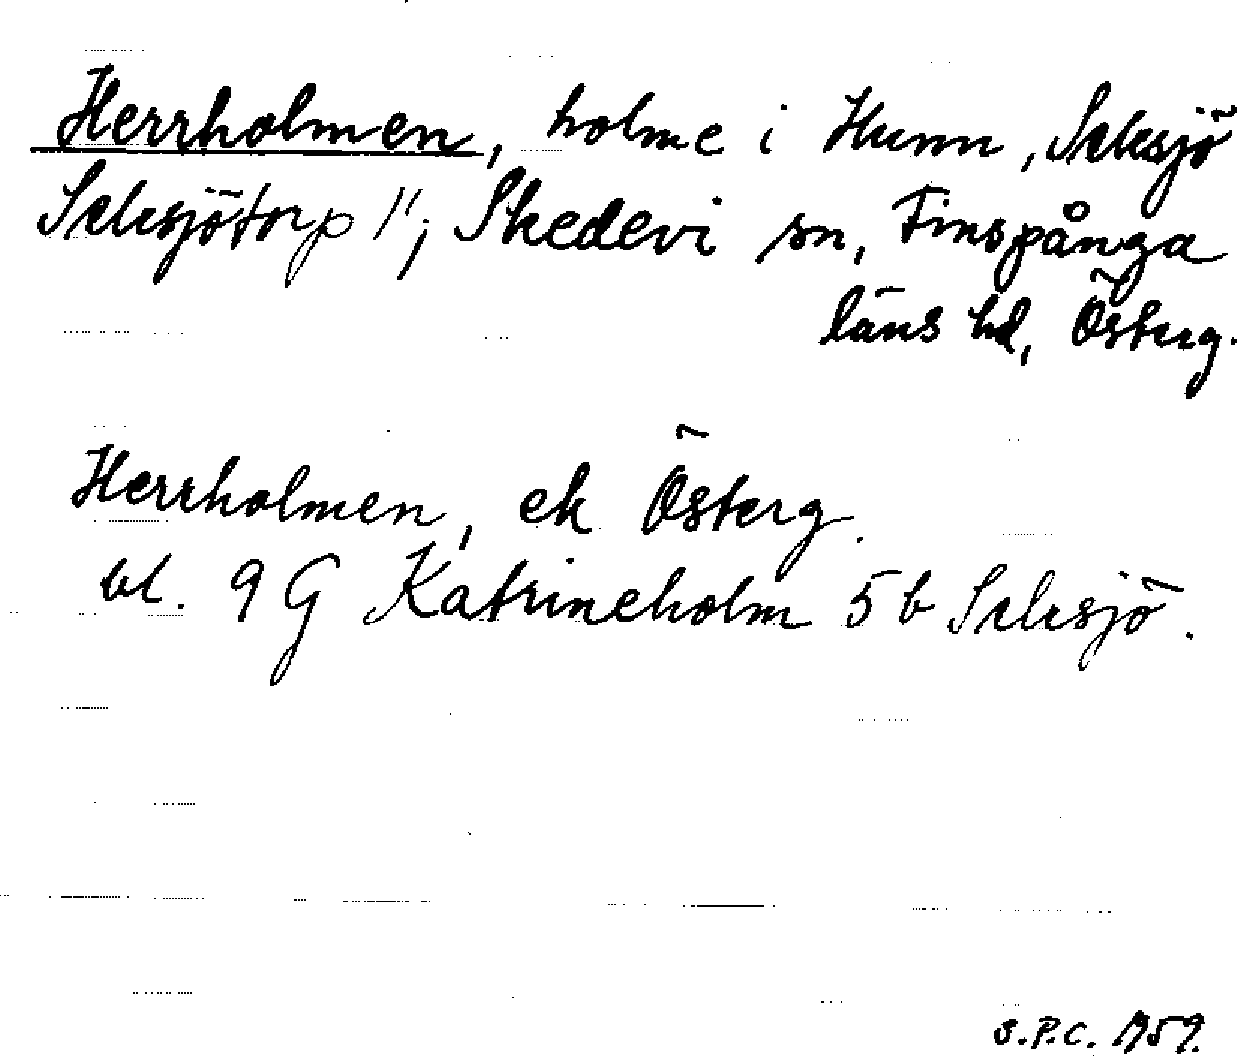 Herrholmen, holme i Hunn, Selesjö
Selesjötorp 1¹; Skedevi sn, Finspånga
läns hd, Österg.
Herrholmen, ek Österg.
bl. 9 G Katrineholm 5 b Selesjö.
S.P.C. 1959.